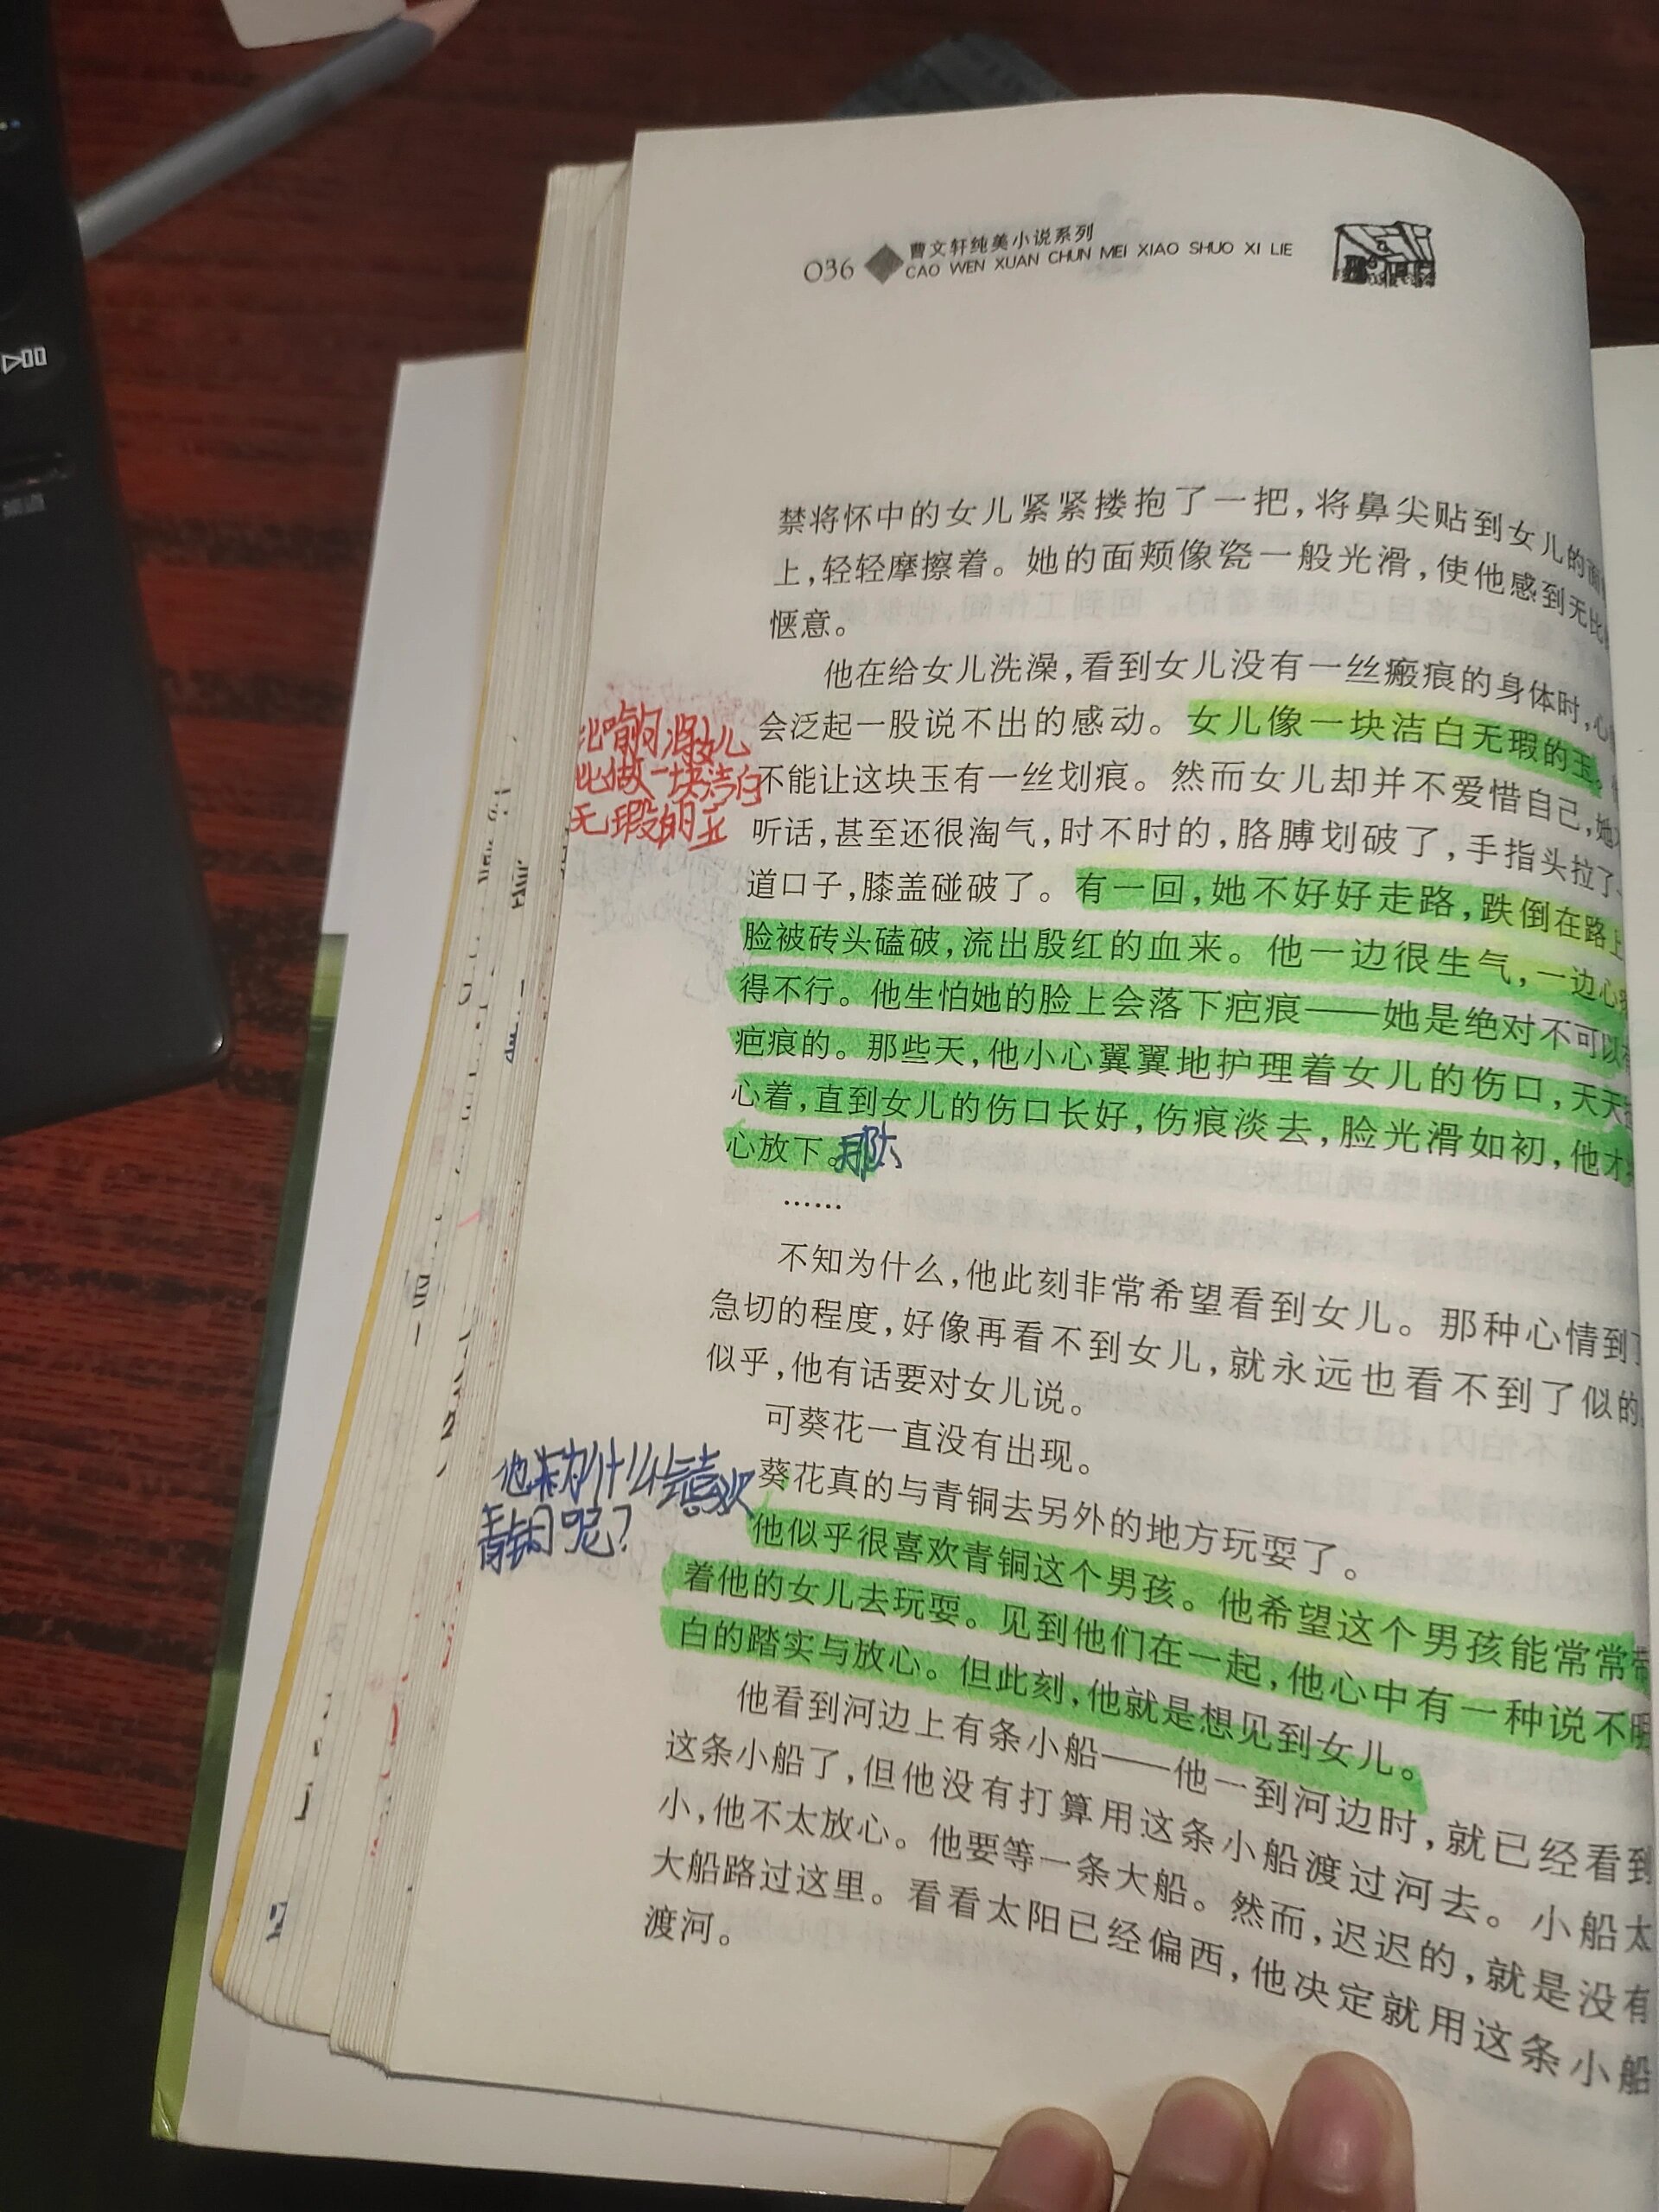 036
曹文轩纯美小说系列
CAO WEN XUAN CHUN MEI XIAO SHUO XI LIE
禁将怀中的女儿紧紧搂抱了一把，将鼻尖贴到女儿的面
上，轻轻摩擦着。她的面颊像瓷一般光滑，使他感到无比
惬意。
他在给女儿洗澡，看到女儿没有一丝瘢痕的身体时，心
会泛起一股说不出的感动。女儿像一块洁白无瑕的玉。
不能让这块玉有一丝划痕。然而女儿却并不爱惜自己，她
听话，甚至还很淘气，时不时的，胳膊划破了，手指头拉了
道口子，膝盖碰破了。有一回，她不好好走路，跌倒在路上
脸被砖头磕破，流出殷红的血来。他一边很生气，一边心
得不行。他生怕她的脸上会落下疤痕——她是绝对不可以
疤痕的。那些天，他小心翼翼地护理着女儿的伤口，天天
心着，直到女儿的伤口长好，伤痕淡去，脸光滑如初，他才
心放下。
……
不知为什么，他此刻非常希望看到女儿。那种心情到了
急切的程度，好像再看不到女儿，就永远也看不到了似的。
似乎，他有话要对女儿说。
可葵花一直没有出现。
葵花真的与青铜去另外的地方玩耍了。
他似乎很喜欢青铜这个男孩。他希望这个男孩能常常带
着他的女儿去玩耍。见到他们在一起，他心中有一种说不明
白的踏实与放心。但此刻，他就是想见到女儿。
他看到河边上有条小船——他一到河边时，就已经看到
这条小船了，但他没有打算用这条小船渡过河去。小船太
小，他不太放心。他要等一条大船。然而，迟迟的，就是没有
大船路过这里。看看太阳已经偏西，他决定就用这条小船
渡河。
比喻句将女儿
比做一块洁白
无瑕的玉
为什么会喜欢
青铜呢？